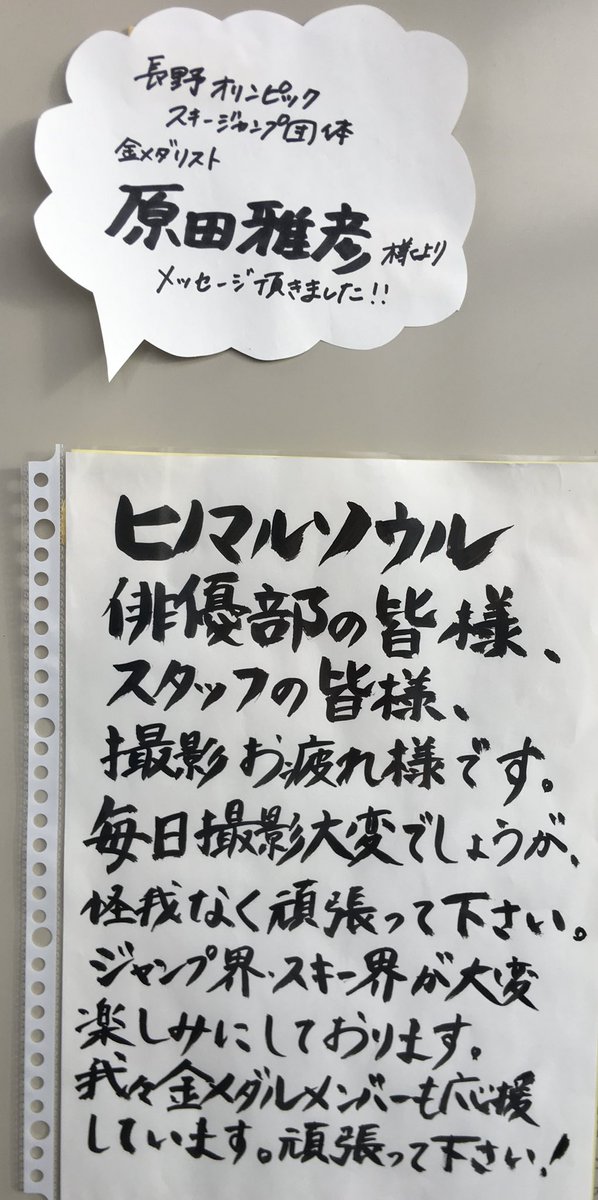 長野オリンピック
スキージャンプ団体
金メダリスト
原田雅彦様より
メッセージ頂きました!!
ヒノマルソウル
俳優部の皆様、
スタッフの皆様、
撮影お疲れ様です。
毎日撮影大変でしょうが、
怪我なく頑張って下さい。
ジャンプ界・スキー界が大変
楽しみにしております。
我々金メダルメンバーも応援
しています。頑張って下さい!